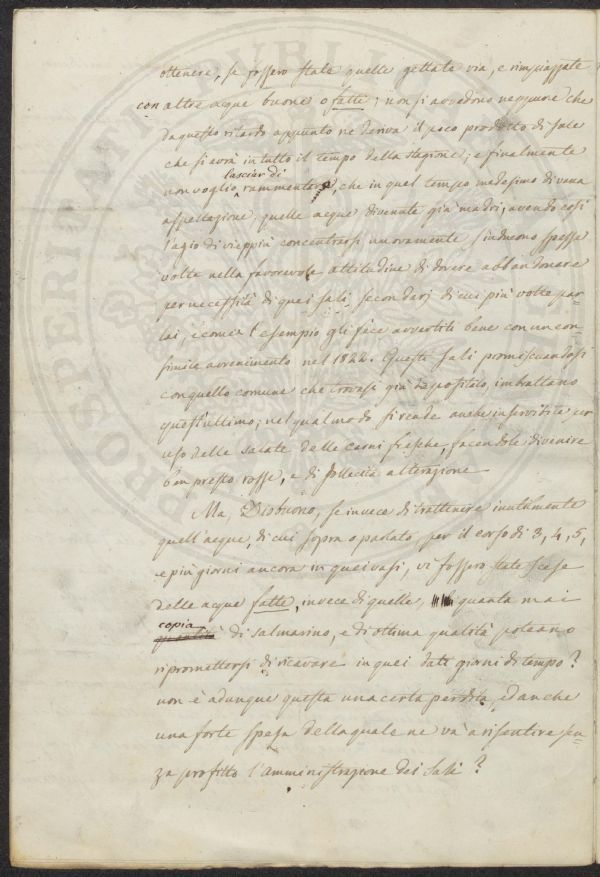 ottenere, se fossero state quelle gettate via, e rimpiazzate
con altre acque buone o fatte; non si avvedono neppure che
da questo ritardo appunto ne deriva il poco prodotto di sale
che si avrà in tutto il tempo della stagione; e finalmente
lasciar di
non voglio rammentare, che in quel tempo medesimo di vana
aspettazione quelle acque divenute già madri, avendo così
l'agio di vieppiù concentrarsi nuovamente s'inducono spesse
volte nella favorevole attitudine di dovere abbandonare
per necessità di quei sali secondarj di cui più volte par-
lai, e come l'esempio gli fece avvertiti bene con un con-
simile avvenimento nel 1822. Questi sali promiscuandosi
con quello comune che trovasi già depositato, imbrattano
quest'ultimo; nel qual modo si rende anche inservibile per
uso delle salate delle carni fresche, facendole divenire
ben presto rosse, e di sollecita alterazione
Ma, Diobuono, se invece di trattenere inutilmente
quell'acque, di cui sopra o parlato, per il corso di 3, 4, 5,
e più giorni ancora in quei vasi, vi fossero state scese
delle acque fatte, invece di quelle, di quanta mai
copia
di salmarino, e di ottima qualità poteano
ripromettersi di ricavare in quei dati giorni di tempo?
non è adunque questa una certa perdita, ed anche
una forte spesa della quale ne và a risentire sen-
za profitto l'amministrazione dei Sali?
PVBLICAE
PROSPERITATI